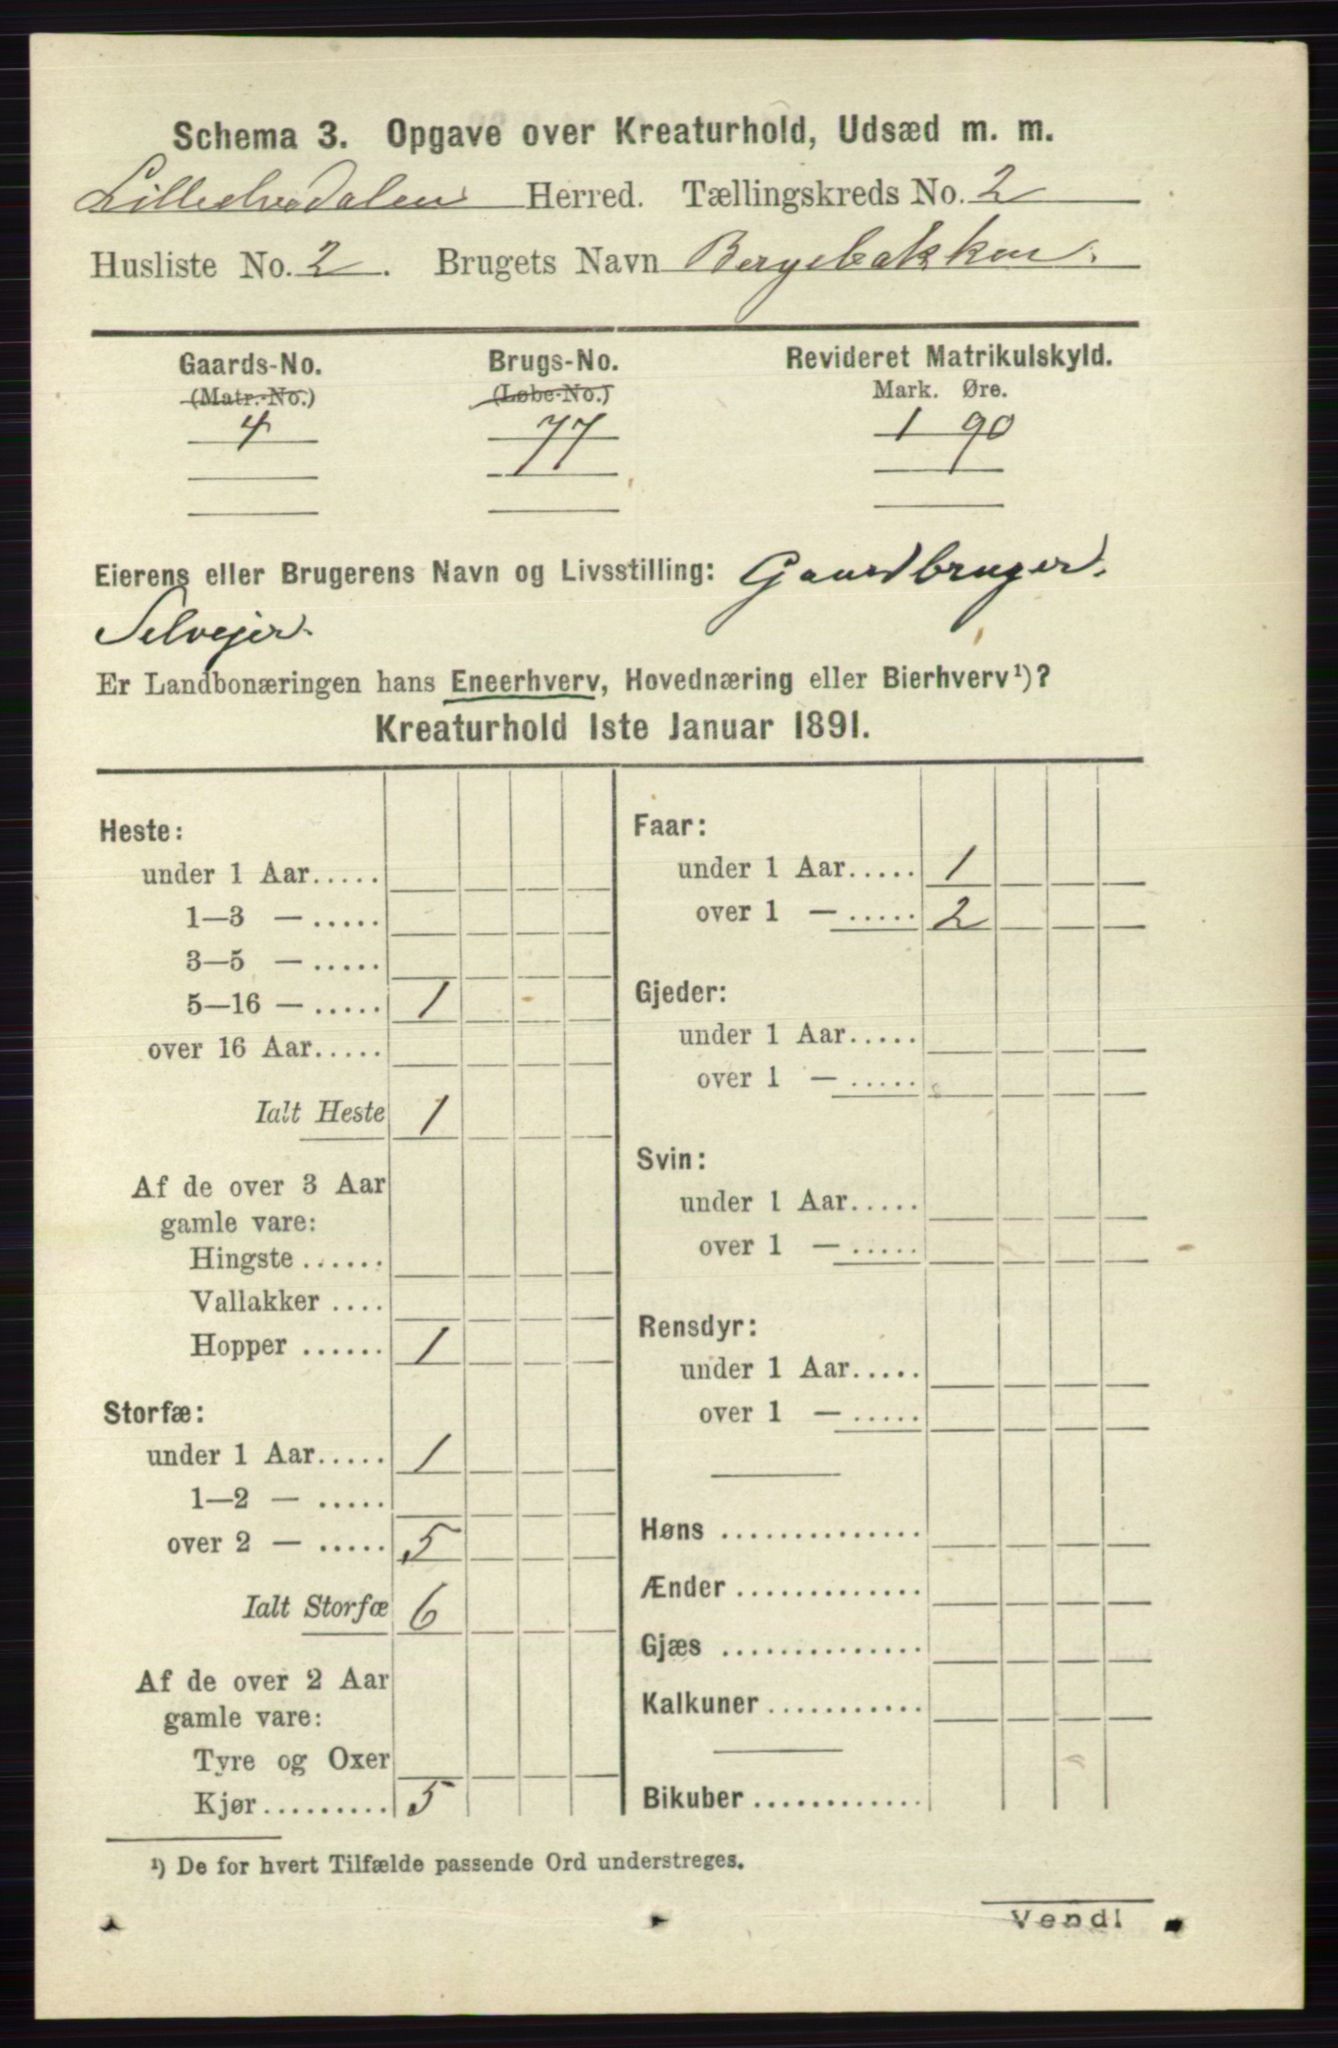 Schema 3. Opgave over Kreaturhold, Udsæd m. m.
Lilleelvedalen Herred. Tællingskreds No. 2
Husliste No. 2. Brugets Navn Bergebakken.
Gaards-No. Brugs-No. Revideret Matrikulskyld.
(Matr.-No.) (Løbe-No.) Mark. Øre.
4 77 1 90
Eierens eller Brugerens Navn og Livsstilling: Gaardbruger,
Selvejer.
Er Landbonæringen hans Eneerhverv, Hovednæring eller Bierhverv¹)?
Kreaturhold 1ste Januar 1891.
Heste:
under 1 Aar.....
1—3 — .....
3—5 — .....
5—16 — ..... 1
over 16 Aar.....
Ialt Heste 1
Af de over 3 Aar
gamle vare:
Hingste ......
Vallakker ....
Hopper ...... 1
Storfæ:
under 1 Aar..... 1
1—2 — .....
over 2 — ..... 5
Ialt Storfæ 6
Af de over 2 Aar
gamle vare:
Tyre og Oxer
Kjør.......... 5
Faar:
under 1 Aar..... 1
over 1 — ..... 2
Gjeder:
under 1 Aar.....
over 1 — .....
Svin:
under 1 Aar.....
over 1 — .....
Rensdyr:
under 1 Aar.....
over 1 — .....
Høns ..............
Ænder .............
Gjæs ..............
Kalkuner ...........
Bikuber ............
¹) De for hvert Tilfælde passende Ord understreges.
Vend!